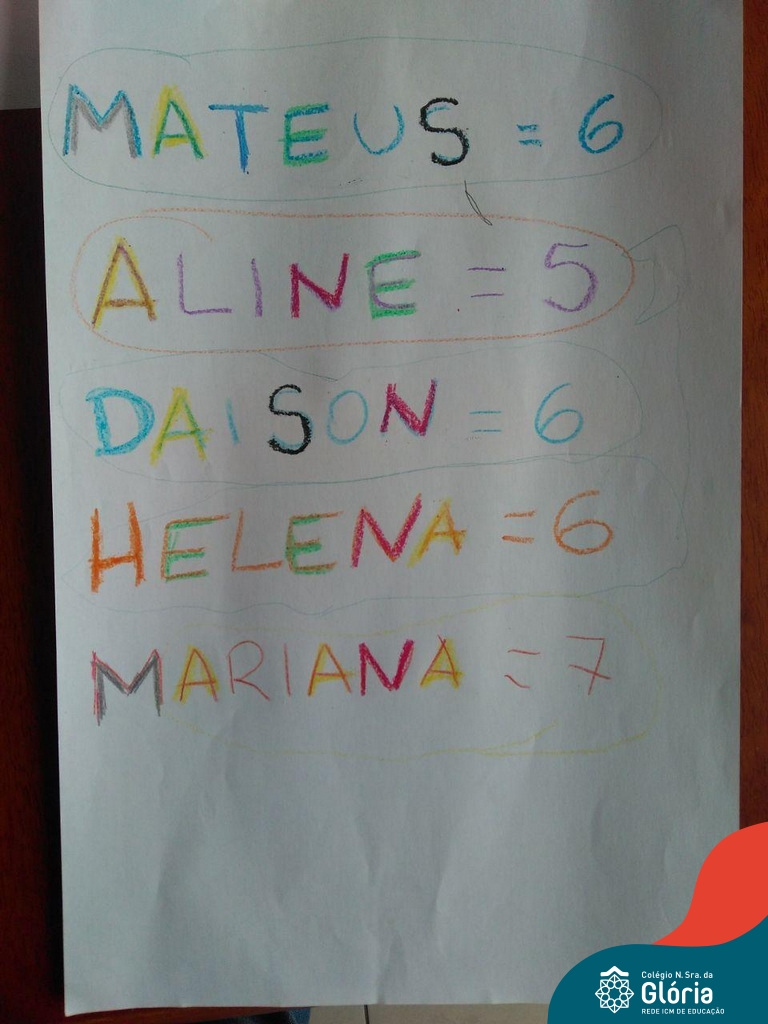 MATEUS = 6
ALINE = 5
DAISON = 6
HELENA = 6
MARIANA = 7
Colégio N. Sra. da
Glória
REDE ICM DE EDUCAÇÃO